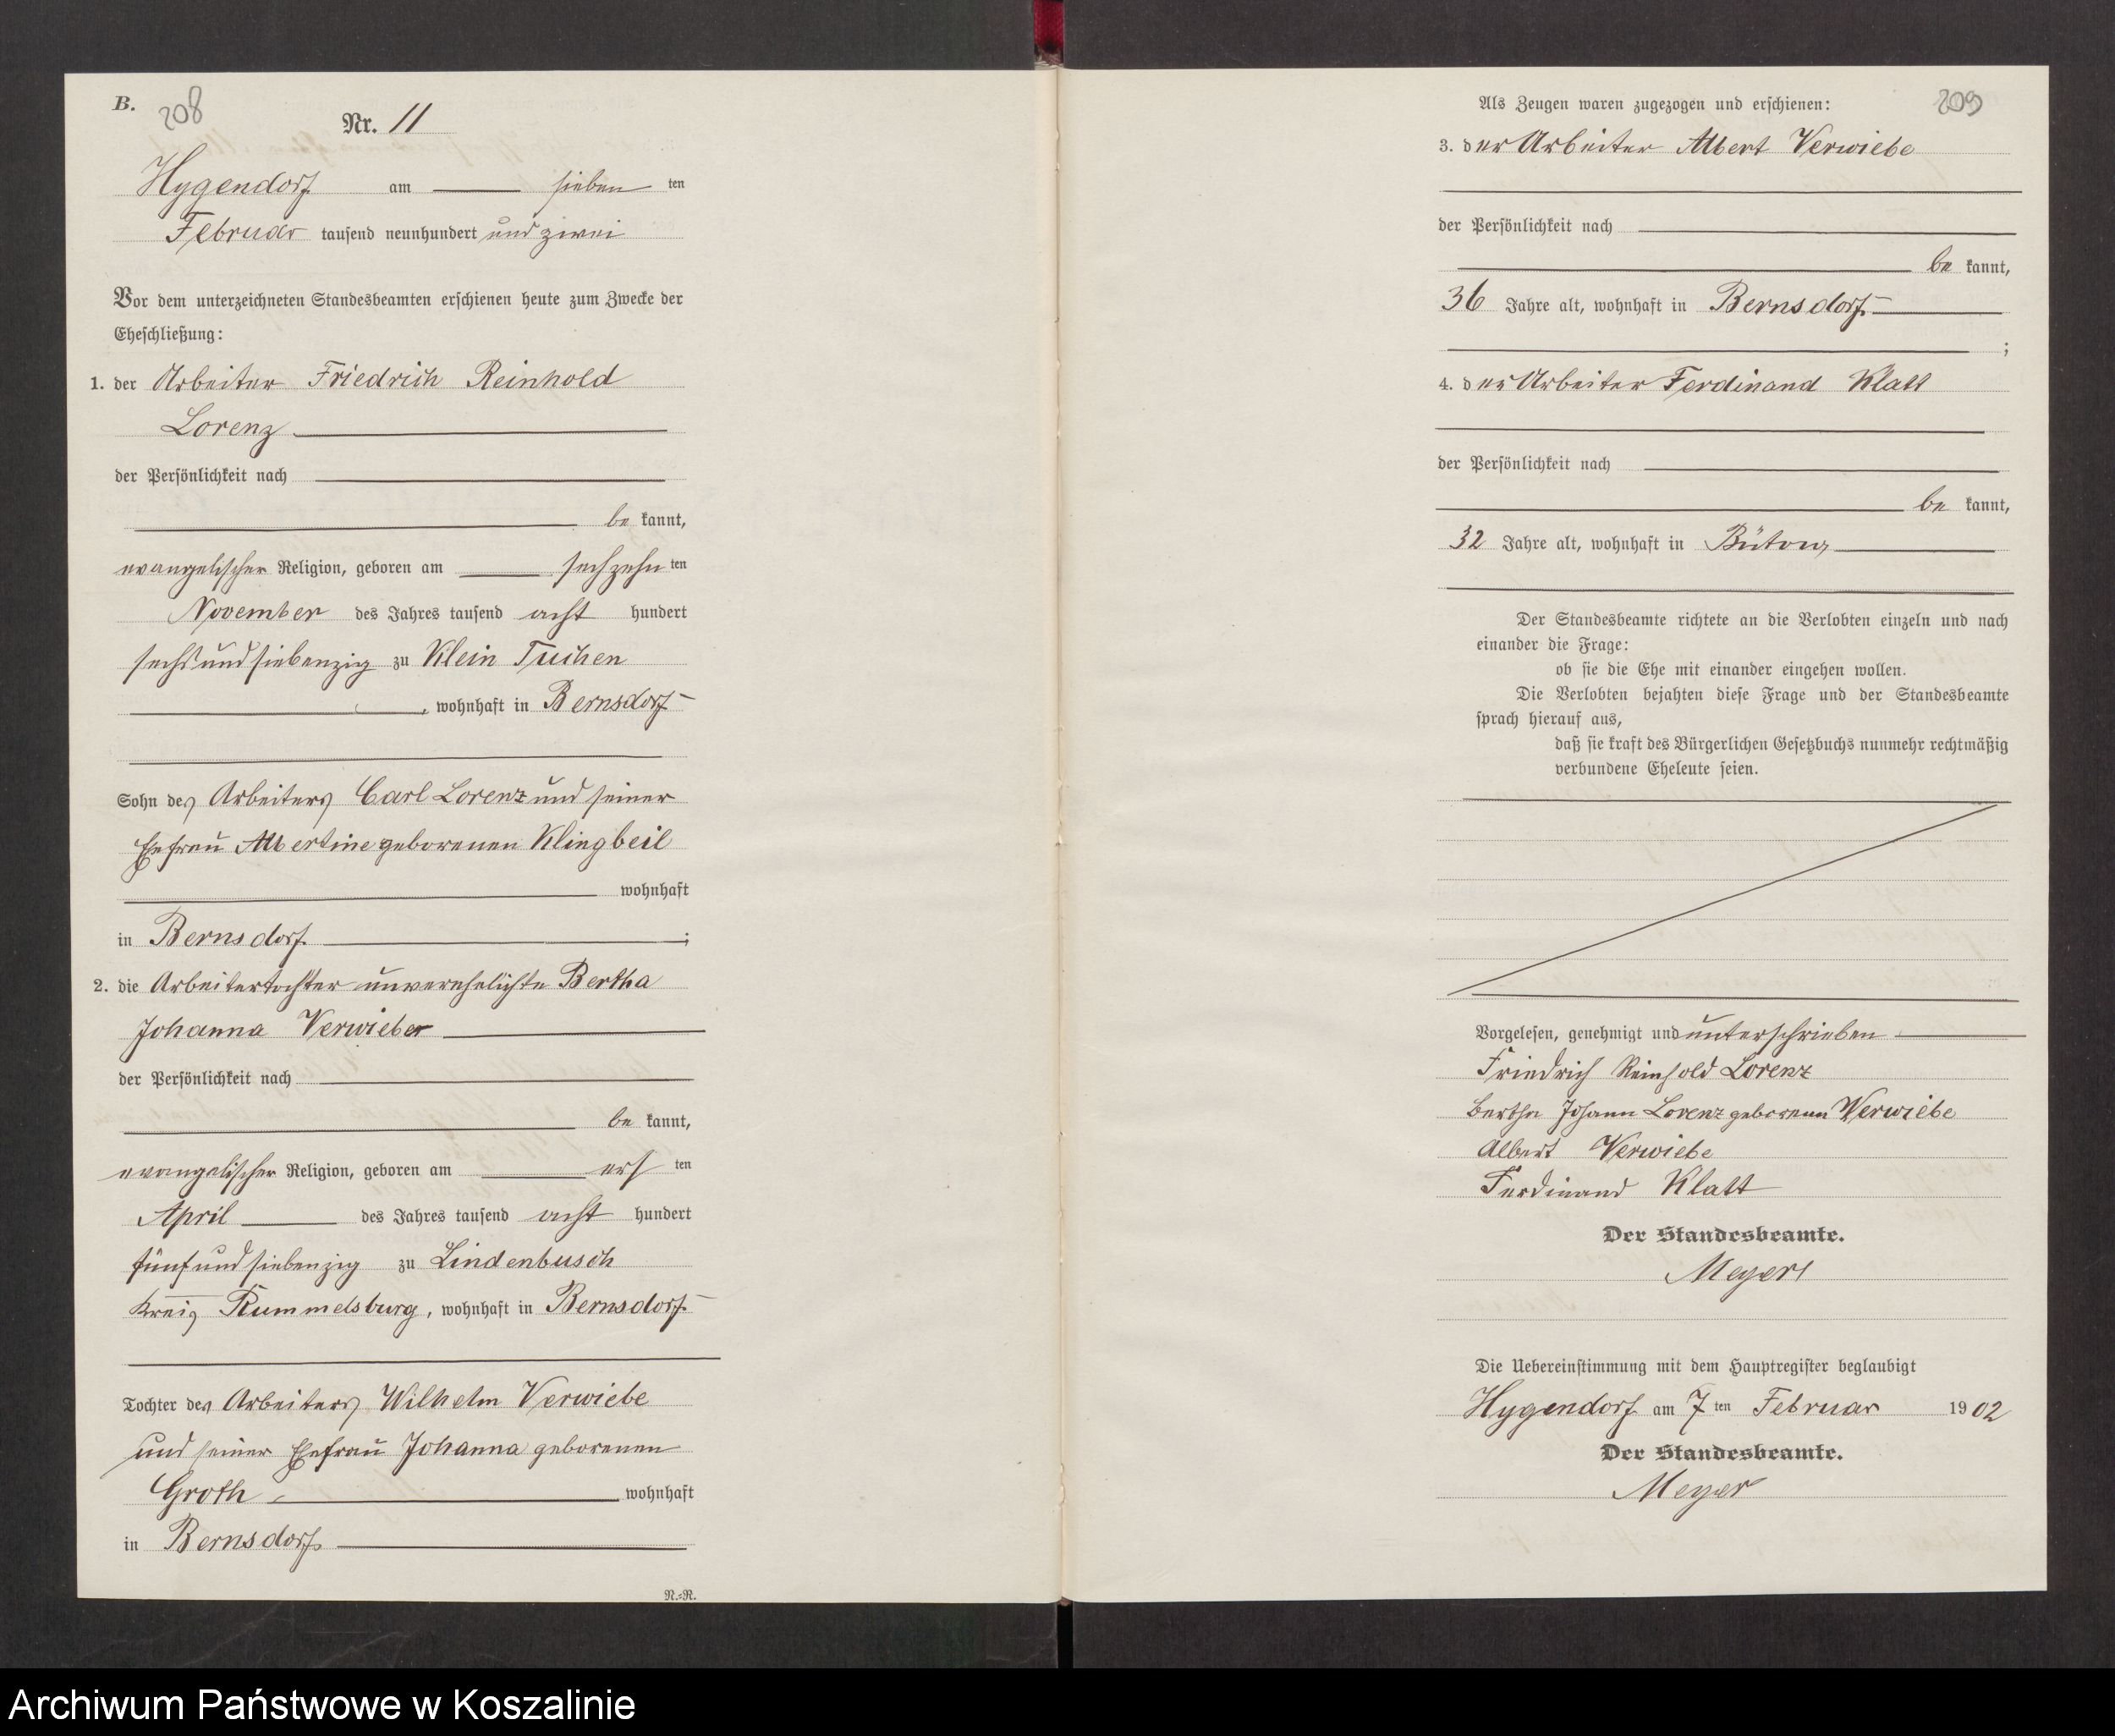 B.
208
Nr. 11
Hygendorf am sieben ten
Februar tausend neunhundert und zwei
Vor dem unterzeichneten Standesbeamten erschienen heute zum Zwecke der
Eheschließung:
1. der Arbeiter Friedrich Reinhold
Lorenz
der Persönlichkeit nach
be kannt,
evangelischer Religion, geboren am sechzehn ten
November des Jahres tausend acht hundert
sechsundsiebenzig zu Klein Tuchen
, wohnhaft in Bernsdorf
Sohn des Arbeiters Carl Lorenz und seiner
Ehefrau Albertine geborenen Klingbeil
wohnhaft
in Bernsdorf ;
2. die Arbeitertochter unverehelichte Bertha
Johanna Verwiebe
der Persönlichkeit nach
be kannt,
evangelischer Religion, geboren am ers ten
April des Jahres tausend acht hundert
fünfundsiebenzig zu Lindenbusch
Kreis Rummelsburg, wohnhaft in Bernsdorf
Tochter des Arbeiters Wilhelm Verwiebe
und seiner Ehefrau Johanna geborenen
Groth wohnhaft
in Bernsdorf
N.=R.
Als Zeugen waren zugezogen und erschienen:
209
3. der Arbeiter Albert Verwiebe
der Persönlichkeit nach
be kannt,
36 Jahre alt, wohnhaft in Bernsdorf
;
4. der Arbeiter Ferdinand Klatt
der Persönlichkeit nach
be kannt,
32 Jahre alt, wohnhaft in Bütow
Der Standesbeamte richtete an die Verlobten einzeln und nach
einander die Frage:
ob sie die Ehe mit einander eingehen wollen.
Die Verlobten bejahten diese Frage und der Standesbeamte
sprach hierauf aus,
daß sie kraft des Bürgerlichen Gesetzbuchs nunmehr rechtmäßig
verbundene Eheleute seien.
Vorgelesen, genehmigt und unterschrieben
Friedrich Reinhold Lorenz
Bertha Johann Lorenz geborenn Verwiebe
Albert Verwiebe
Ferdinand Klatt
Der Standesbeamte.
Meyer
Die Uebereinstimmung mit dem Hauptregister beglaubigt
Hygendorf am 7 ten Februar 1902
Der Standesbeamte.
Meyer
Archiwum Państwowe w Koszalinie